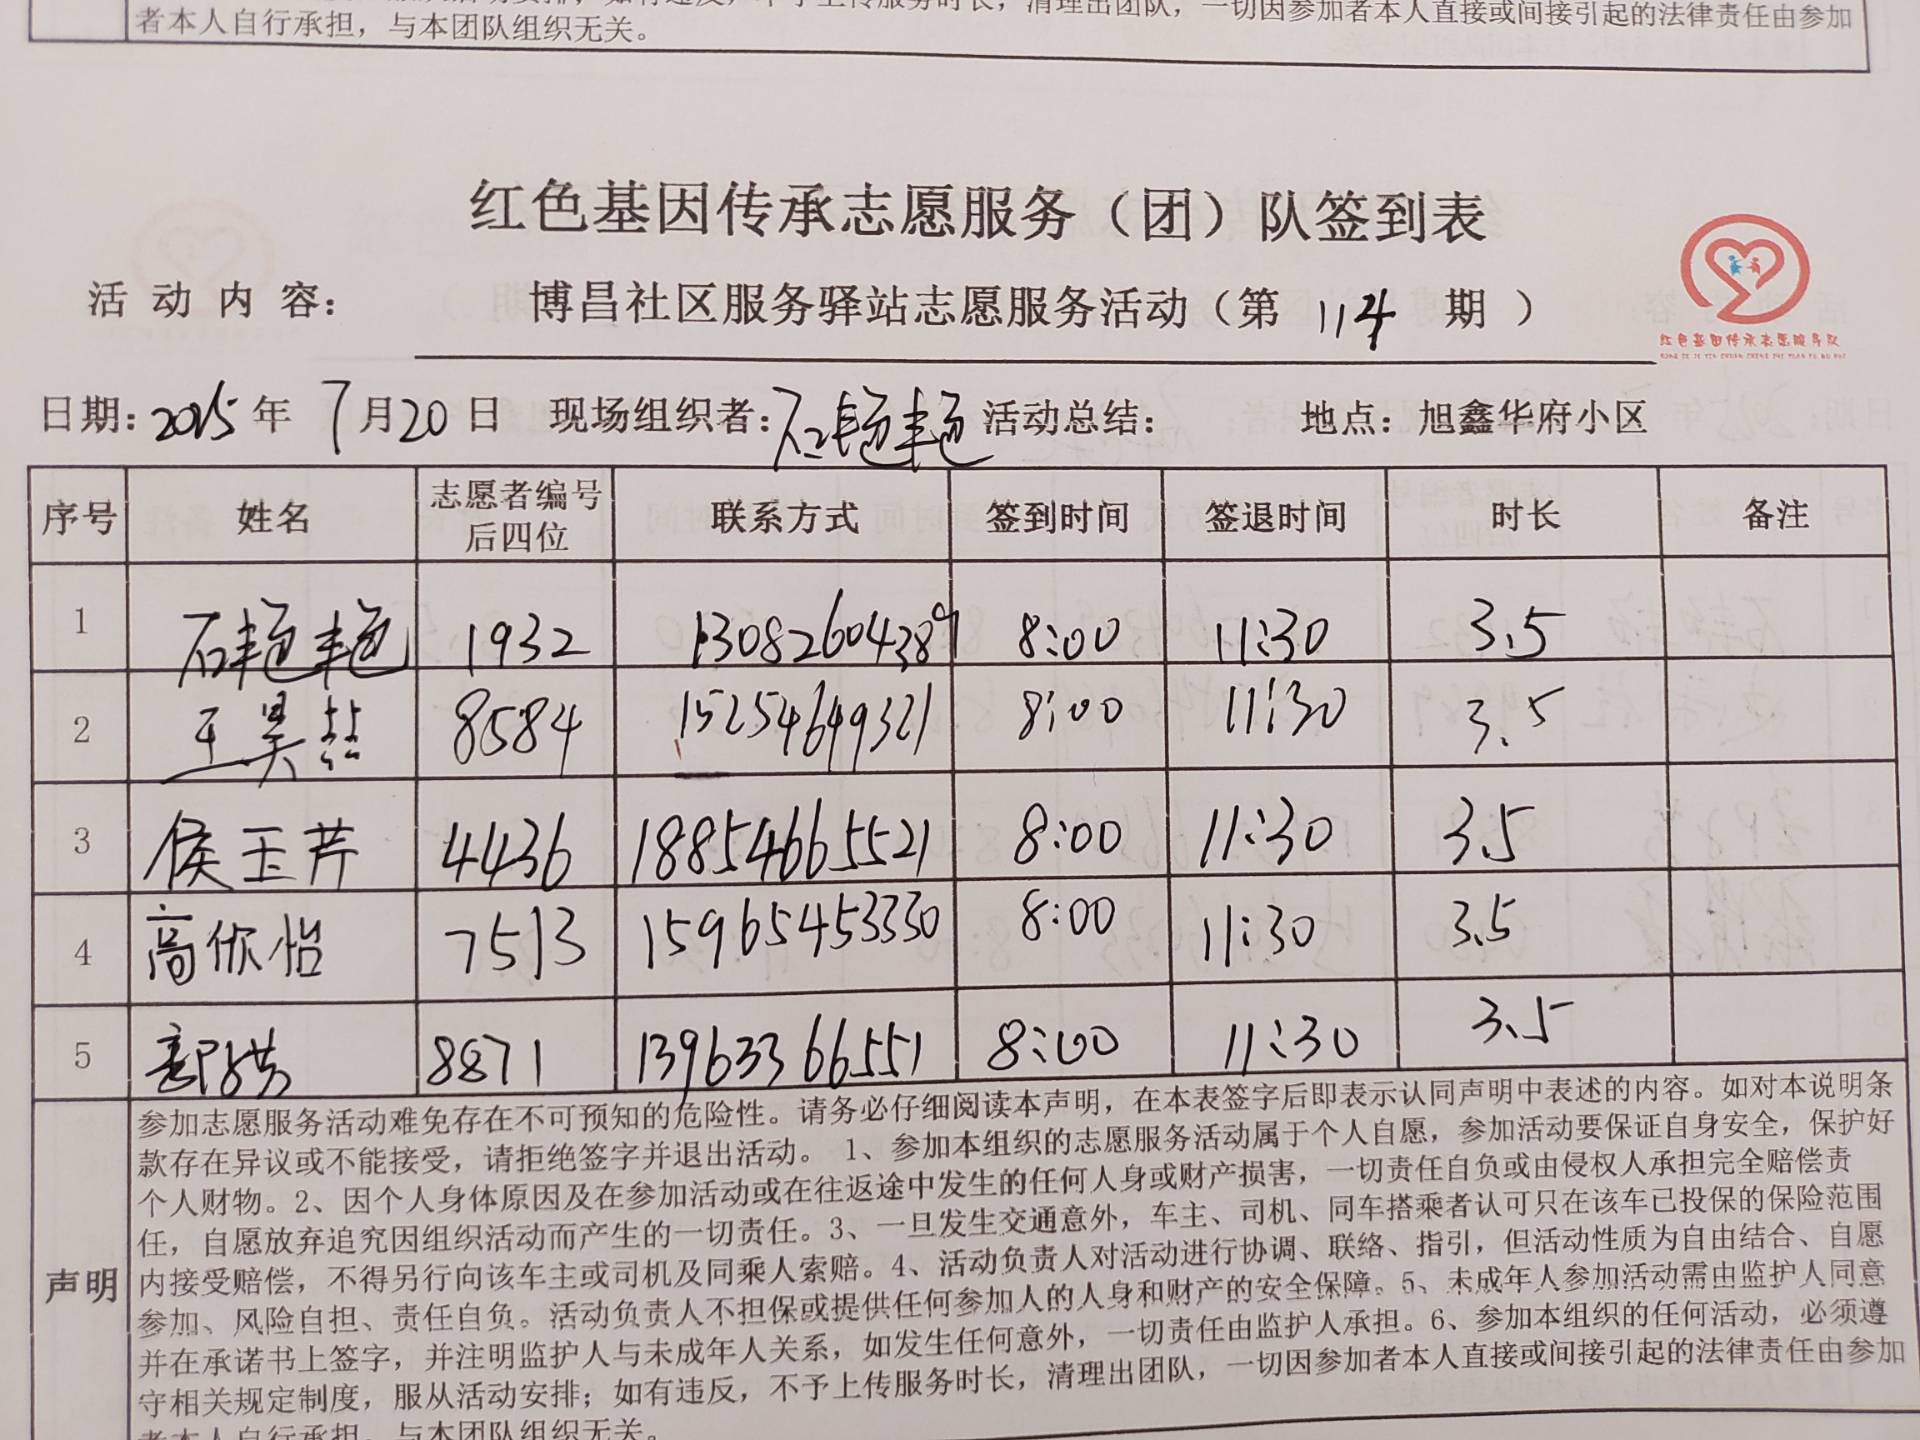 者本人自行承担，与本团队组织无关。 清理出团队，一切因参加者本人直接或间接引起的法律责任由参加
红色基因传承志愿服务（团）队签到表
活 动 内 容： 博昌社区服务驿站志愿服务活动（第 114 期 ）
红色基因传承志愿服务队
日期：2025年 7月20日 现场组织者：石艳艳 活动总结： 地点：旭鑫华府小区
序号 姓名 志愿者编号后四位 联系方式 签到时间 签退时间 时长 备注
1 石艳艳 1932 13082604389 8:00 11:30 3.5
2 王昊喆 8584 15254649321 8:00 11:30 3.5
3 侯玉芹 4436 18854665521 8:00 11:30 3.5
4 高依怡 7513 15965453330 8:00 11:30 3.5
5 8871 13963366551 8:00 11:30 3.5
声明
参加志愿服务活动难免存在不可预知的危险性。请务必仔细阅读本声明，在本表签字后即表示认同声明中表述的内容。如对本说明条
款存在异议或不能接受，请拒绝签字并退出活动。 1、参加本组织的志愿服务活动属于个人自愿，参加活动要保证自身安全，保护好
个人财物。2、因个人身体原因及在参加活动或在往返途中发生的任何人身或财产损害，一切责任自负或由侵权人承担完全赔偿责
任，自愿放弃追究因组织活动而产生的一切责任。3、一旦发生交通意外，车主、司机、同车搭乘者认可只在该车已投保的保险范围
内接受赔偿，不得另行向该车主或司机及同乘人索赔。4、活动负责人对活动进行协调、联络、指引，但活动性质为自由结合、自愿
参加、风险自担、责任自负。活动负责人不担保或提供任何参加人的人身和财产的安全保障。5、未成年人参加活动需由监护人同意
并在承诺书上签字，并注明监护人与未成年人关系，如发生任何意外，一切责任由监护人承担。6、参加本组织的任何活动，必须遵
守相关规定制度，服从活动安排；如有违反，不予上传服务时长，清理出团队，一切因参加者本人直接或间接引起的法律责任由参加
者本人自行承担，与本团队组织无关。